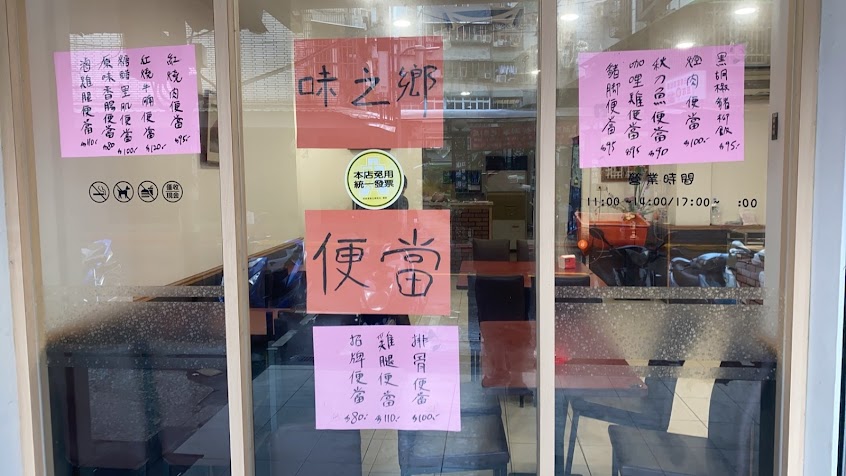 味之鄉
便當
本店免用
統一發票
紅燒肉便當 $95.-
紅燒牛腩便當 $120.-
糖醋里肌便當 $100.-
原味香腸便當 $80
滷雞腿便當 $110.-
僅收
現金
排骨便當 $100.-
雞腿便當 $110.-
招牌便當 $80.-
黑胡椒豬柳飯 $95.-
焢肉便當 $100.-
秋刀魚便當 $90
咖哩雞便當 $95
豬脚便當 $95
營業時間
11:00~14:00/17:00~ :00